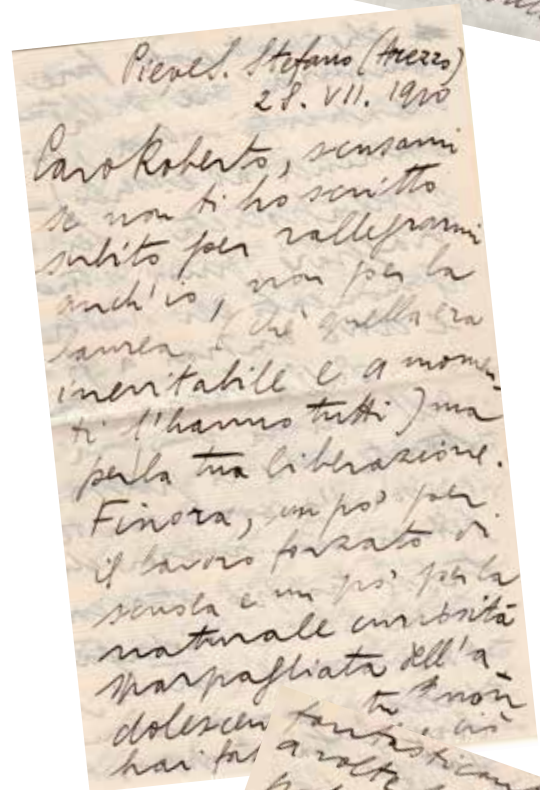 Pieve S. Stefano (Arezzo)
28. VII. 1910
Caro Roberto, scusami
se non ti ho scritto
subito per rallegrarmi
anch'io, non per la
laurea (ché quella era
inevitabile e a momen-
ti l'hanno tutti) ma
per la tua liberazione.
Finora, un po' per
il lavoro forzato di
scuola e un po' per la
naturale curiosità
sparpagliata dell'a-
dolescen tu non
hai
a volte